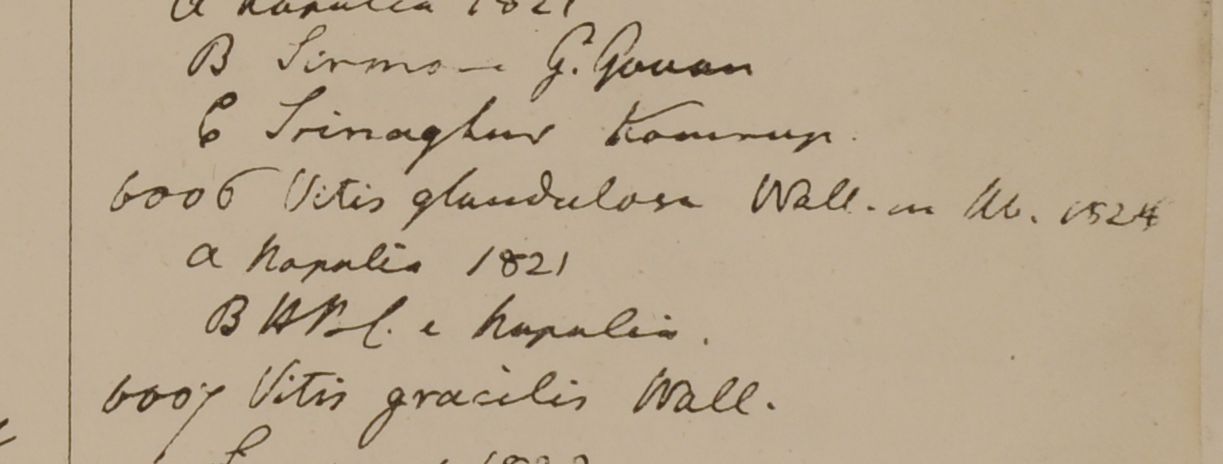 a Napalia 1821
B Sirmore G. Govan
C Srinaghur Kamrup.
6006 Vitis glandulosa Wall. in Hb. 1824
a Napalia 1821
B HBC. e Napalia.
6007 Vitis gracilis Wall.